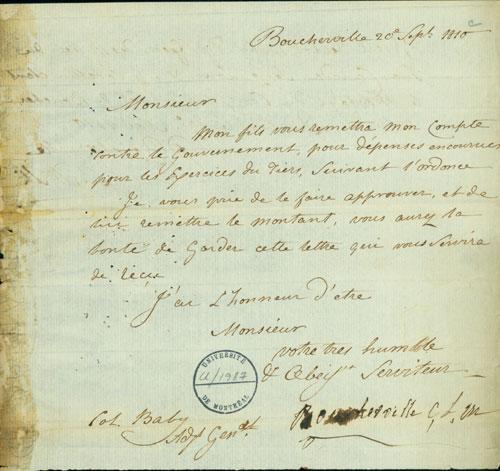 Boucherville 20e Sept. 1810
Monsieur
Mon fils vous remettra mon Compte
Contre le Gouvernement, pour dépenses encourues
pour les Exercices du Tiers, Suivant l'ordonce
Je vous prie de le faire approuver, et de
lui remettre le montant, vous aurez la
bonté de Garder cette lettre qui vous Servira
de reçu
J'ai L'honneur d'etre
Monsieur
votre tres humble
& Obeist. Serviteur
Boucherville C, L, M
Col. Baby
Adjt Genel.
UNIVERSITÉ
U/1987
DE MONTRÉAL